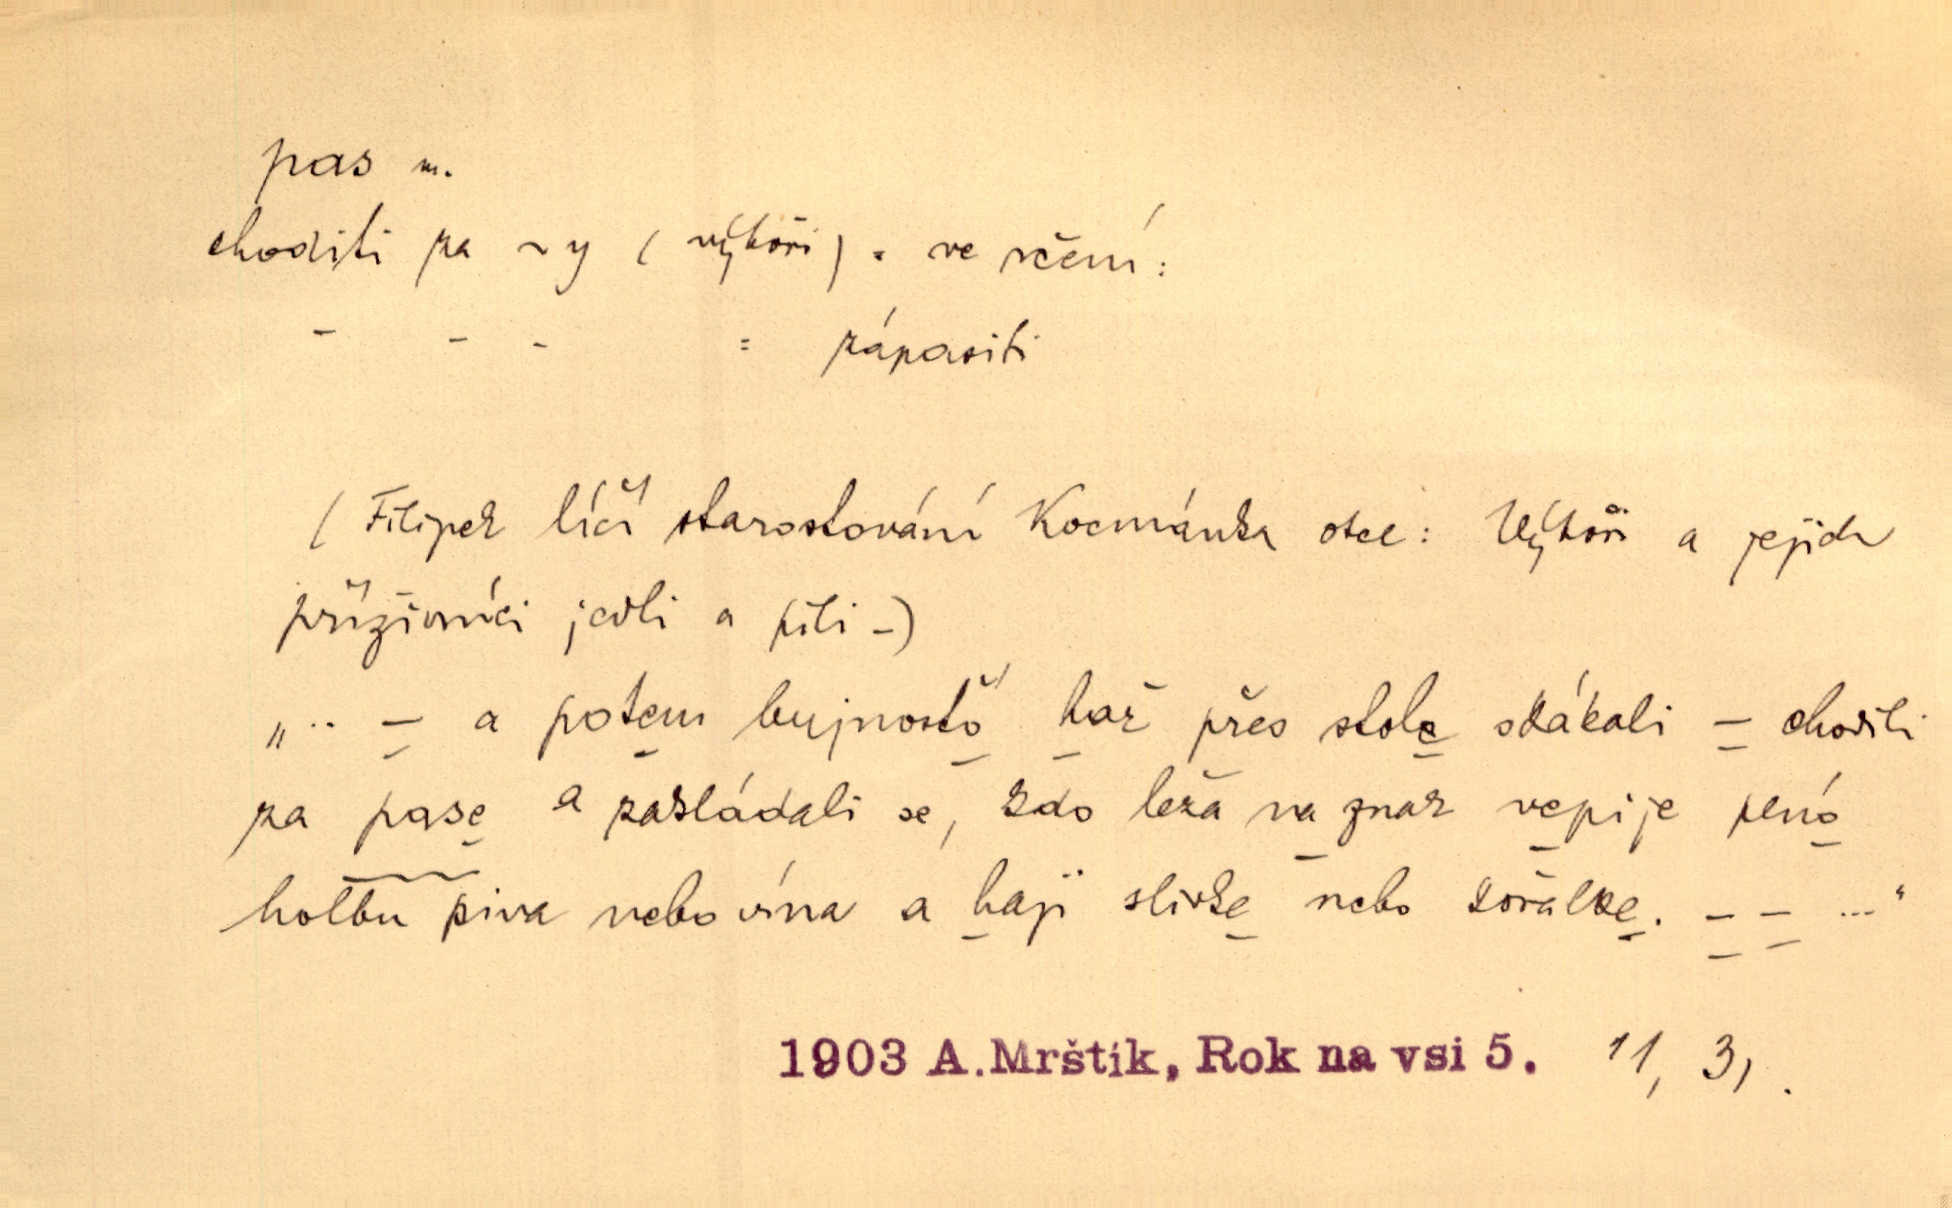 pas m.
choditi za ~y (výboři) = ve rčení:
- - - = zápasiti
(Filipek líčí starostování Kocmánka otce: Výboři a jejich
příživníci jedli a pili –)
„.. – a potem bujnostó haž přes stole skákali – chodili
za pase a zakládali se, kdo leža na znak vepije penó
holbu piva nebo vína a haji slivke nebo kořalke. – – ..."
1903 A.Mrštík, Rok na vsi 5. 11, 31.